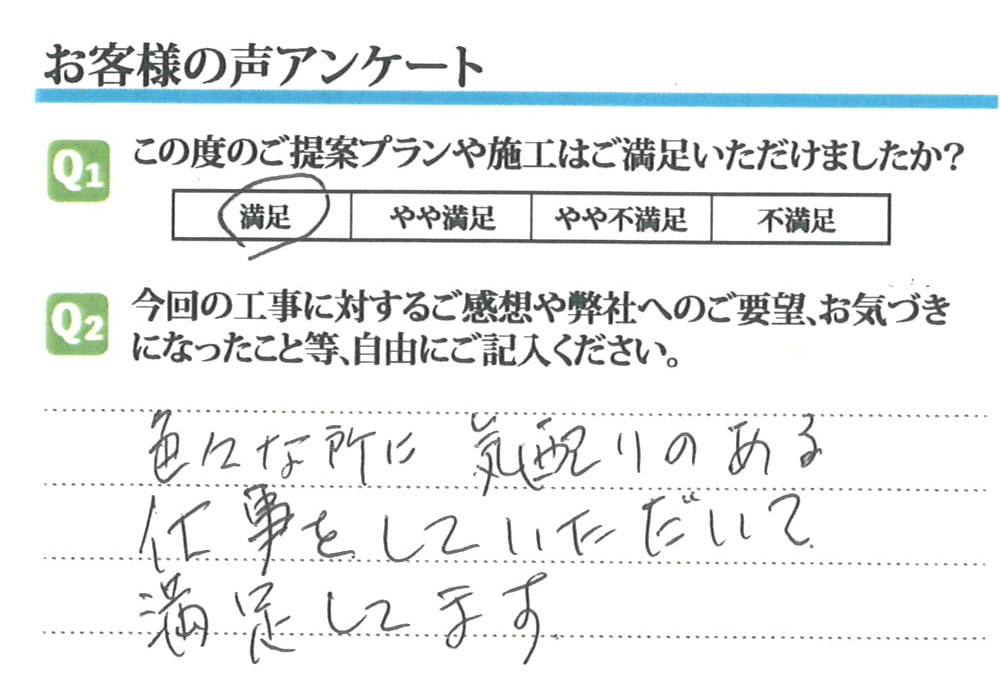 お客様の声アンケート
Q1 この度のご提案プランや施工はご満足いただけましたか?
満足 やや満足 やや不満足 不満足
Q2 今回の工事に対するご感想や弊社へのご要望、お気づき
になったこと等、自由にご記入ください。
色々な所に 気配りのある
仕事をしていただいて
満足してます